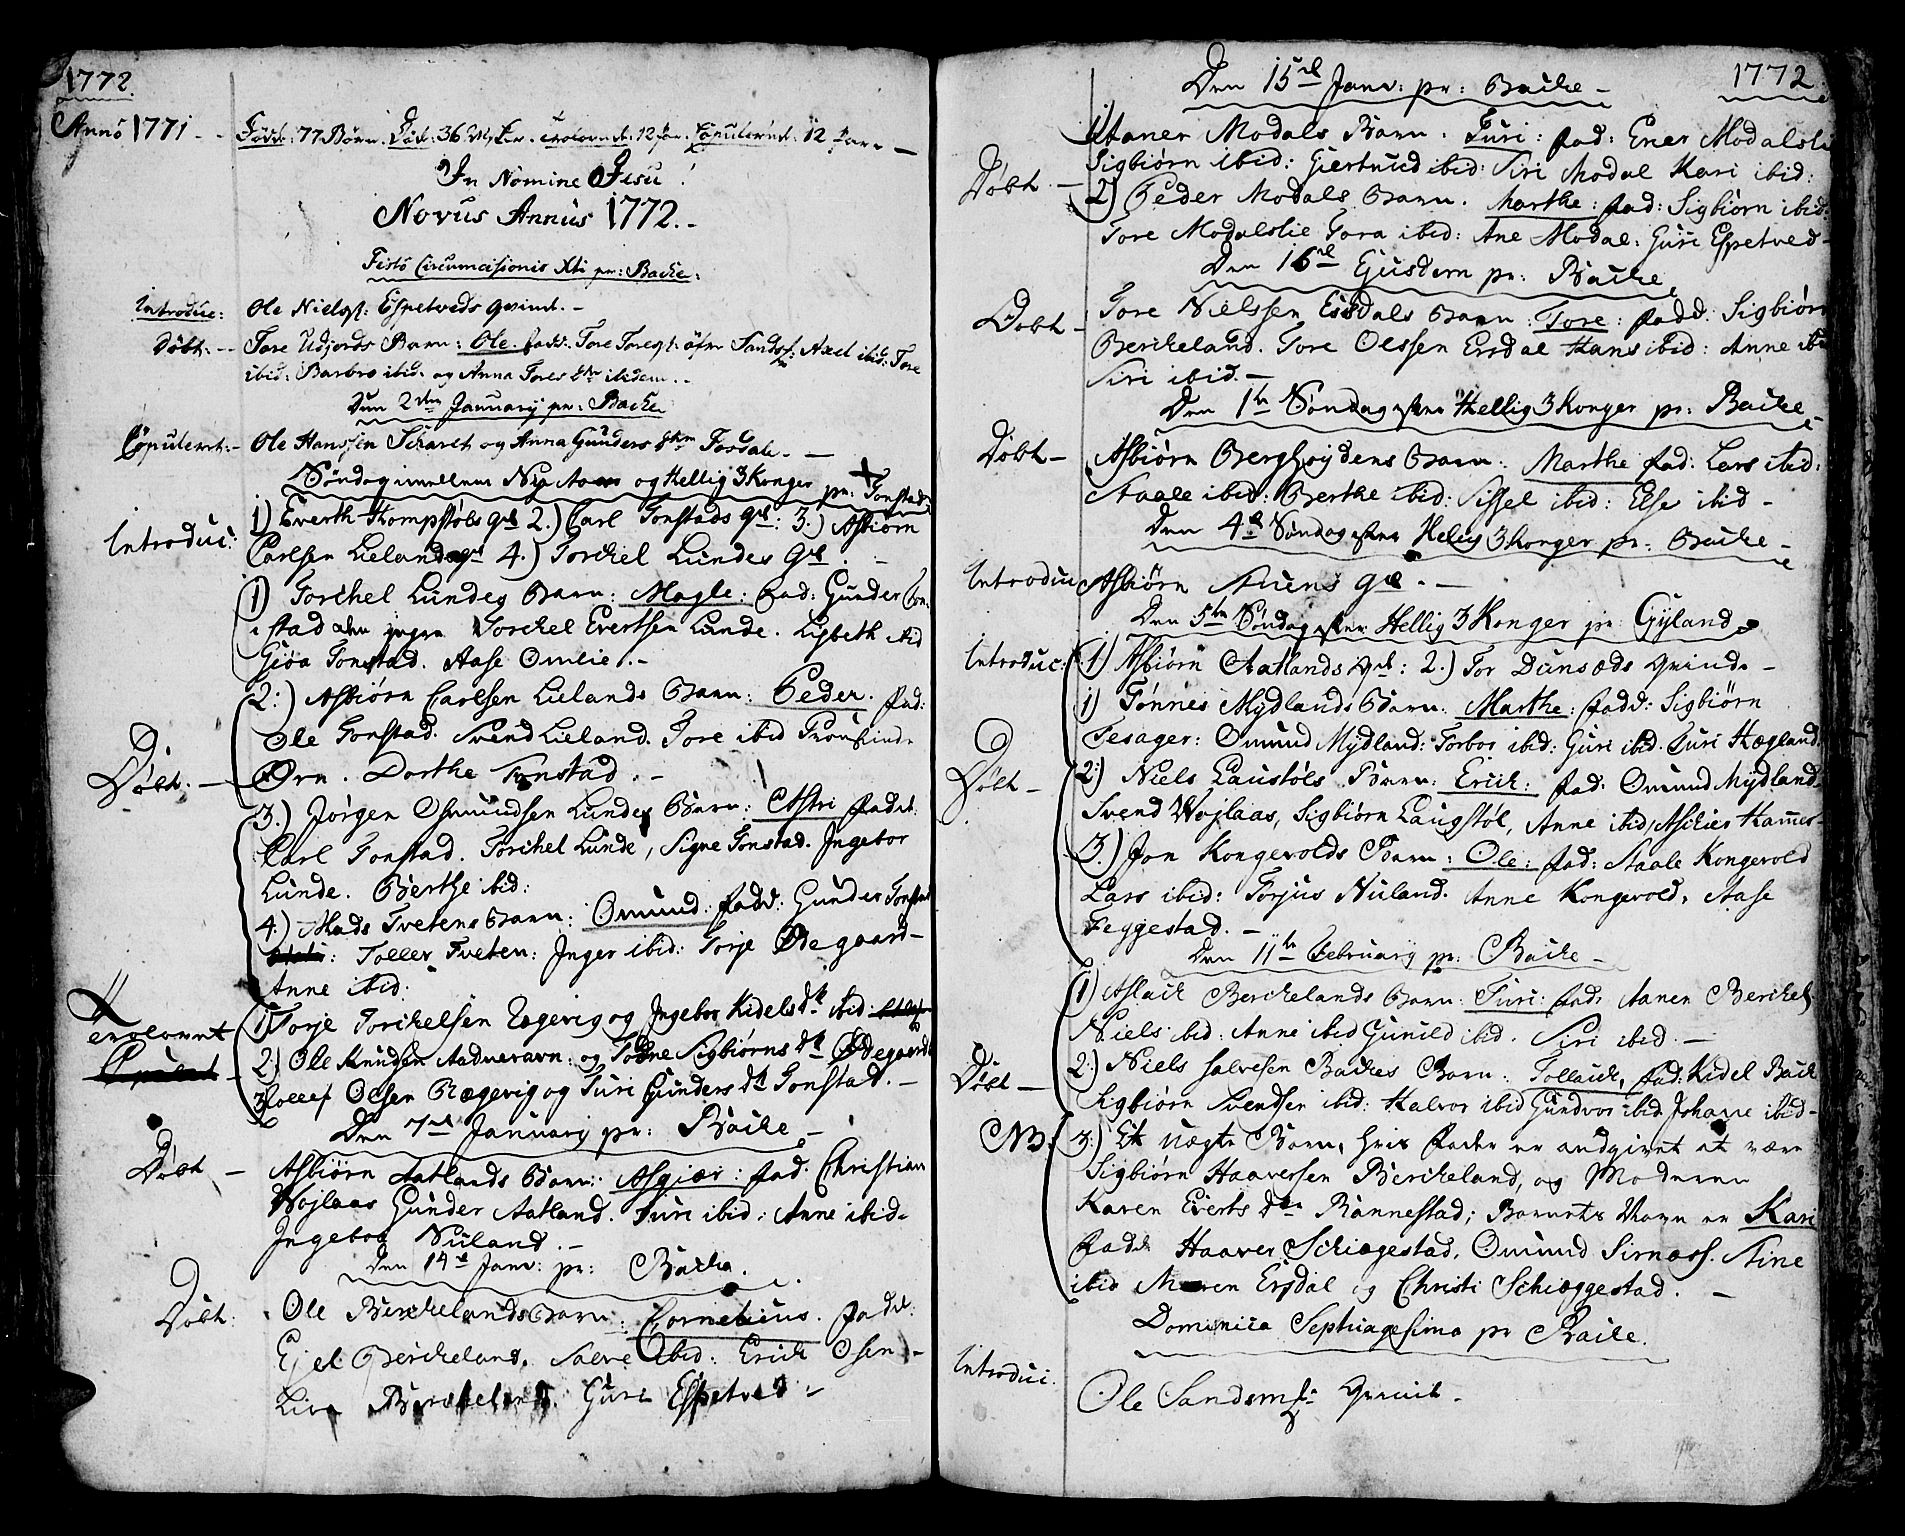 1772
Anno 1771 - - Fødde: 77 Børn. Død: 36 M: trolovede: 12 Par. Copulerede: 12 Par. —
In Nomine Jesu!
Novus Annus 1772. -
Festo Circumcisionis Xti pr: Backe:
Introduc: Ole Niels: Espetveds qvinde. -
Døbt. - - Tore Udjords Barn: Ole. fadd: Tore Tores: Sands: Axel ibid: Tore
ibid: Barbro ibid. og Anna Tores ibidem. -
Den 2den January pr: Backe
Copuleret: - Ole Hanssen Scharet og Anna Gunders Josdale. —
Søndag imellem Nye Aar og Hellig 3 Konger pr: Tonstad
Introduc: 1) Everth Hompstøls qv: 2.) Carl Tonstads qv: 3.) Asbiørn
Carlsen Lielands qv: 4.) Torchel Lundes qv: -
1) Torchel Lundes Barn: Magle: fad: Gunder
Torchel Evertsen Lunde. Lisbeth ibid
Giøa Tonstad. Aase Omlie. -
2:) Asbiørn Carlsen Lielands Barn: Peder. fad:
Ole Tonstad. Svend Lieland. Tore ibid
Døbt. — Ørn. Dorthe Tonstad. -
3.) Jørgen Osmundsen Lundes Barn: Astri fadd:
Carl Tonstad. Torchel Lunde, Signe Tonstad. Ingebor
Lunde. Berthe ibid:
4.) Mads Tvetens Barn: Omund: fadd: Gunder Tonstad
Toller Tveten: Inger ibid: Torje Ødegaard -
Anne ibid:
trolovet 1) Torje Torchelsen Rægevig og Ingebor Kidels dt ibid.
2.) Ole Knudsen Aadneravn: og Tone Sigbiørns dt Ødegaard
3) Ollef Olsen Rægevig og Turi Gunders dt Tonstad. -
Den 7de January pr: Backe -
Døbt — Asbiørn Aatlands Barn: Asgier: fad: Christian
Wojlaas Gunder Aatland. Turi ibid: Anne ibid.
Ingebor Nuland. -
Den 14de Janv: pr: Backe.
Døbt: Ole Berchelands Barn: Cornelius. fadd:
Ejel Bercheland. Salve ibid: Erich Osen -
Live Bercheland. Guri Espetved -
1772
Den 15de Janv: pr: Backe -
Aaner Modals Barn: Turi: fad: Ener Modalslie
Døbt. — Sigbiørn ibid: Giertrud ibid: Siri Modal Kari ibid:
2) Peder Modals Barn. Marthe: fad: Sigbiørn ibid:
Tore Modalslie Tora ibid: Ane Modal: Guri Espetved -
Den 16de Ejusdem pr: Backe
Døbt - Tore Nielssen Ersdals Barn: Tore: fadd: Sigbiørn
Bercheland. Tore Olssen Ersdal Hans ibid: Anne ibid
Siri ibid. -
Den 1te Søndag efter Hellig 3 Konger pr: Backe -
Døbt - Asbiørn Berghøydens Barn: Marthe fad: Lars ibid:
Staale ibid: Berthe ibid: Sissel ibid: Else ibid -
Den 4de Søndag efter Hellig 3 Konger pr: Backe -
Introduc Asbiørn qv. —
Den 5te Søndag efter Hellig 3 Konger pr Gyland
Introduc: 1) Asbiørn Aatlands qv: 2.) Tor Dunsæds qvinde -
1) Tønnes Mydlands Barn: Marthe: fadd: Sigbiørn
Tesager: Omund Mydland: Torbor ibid: Guri ibid. Turi Hægland.
Døbt - 2.) Niels Laustøls Barn: Erich: fad: Omund Mydland
Svend Wojlaas, Sigbiørn Laugstøl, Anne ibid, Aschier Hammer-
3.) Jon Kongevolds Barn: Ole: fad: Staale Kongevold
Lars ibid: Torjus Nuland. Anne Kongevold, Aase
Feggestad. -
Den 11te February pr: Backe -
1) Aslach Berchelands Barn: Turi: fad: Aanen Berchel
Niels ibid: Anne ibid Gunild ibid. Siri ibid. —
Døbt — 2.) Niels Salvesen Backes Barn: Tollach, fad: Kidel Back
Sigbiørn Svendsen ibid: Halvor ibid Gundvor ibid Johanne ibid -
NB: 3.) Et uægte Barn, hvis Fader er andgivet at være
Sigbiørn Haaversen Bercheland, og Moderen
Karen Everts dtr Rannestad; Barnets Navn er Kari
fadd: Haaver Schiegestad, Omund Sirnæss. Stine
ibid Maren Ersdal og Christi Schieggestad. —
Dominica Septuagesima pr Backe.
Introduc: Ole Sandsm: Qvinde -